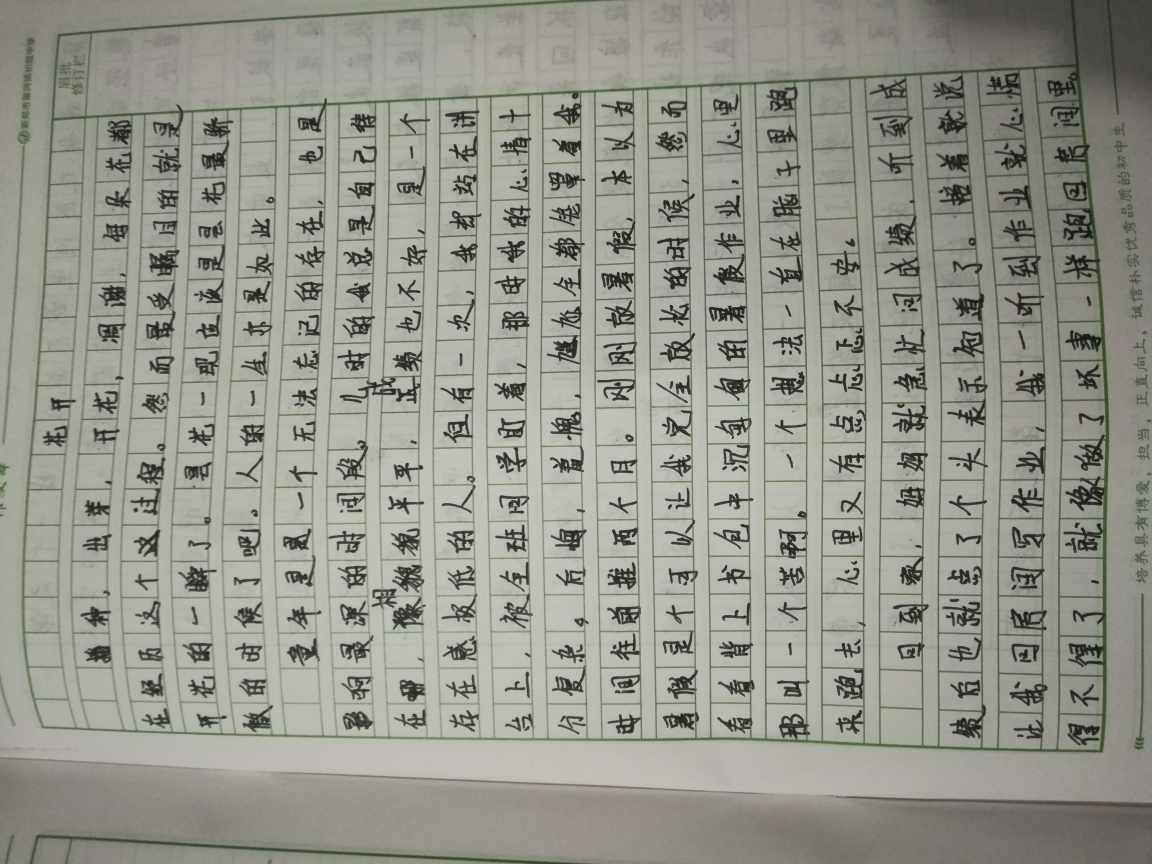 花开
播种，出芽，开花，凋谢，每朵花都
在经历这个这过程。然而最受瞩目的就是
开花的一瞬了。昙花一现应该是昙花最骄
傲的时候了吧。人的一生亦是如此。
童年是是一个无法忘记的存在，也是
影响最深的时间段。儿时的我总是自己待
在哪，相貌貌平平，成绩也不好，是一个
存在感极低的人。但有一次，我却站在讲
台上，被全班同学盯着，那时我的心情十
分复杂。后悔，羞愧，尴尬全都笼罩着我。
时间往前推两个月。刚刚放暑假，本以为
暑假是个可以让我完全放松的时候，然而
看看背上书包中沉甸甸的暑假作业，心里
那叫一个苦啊。一个想法一直在脑子里跑
来跑去，心里又有点忐忑不安。
回到家，妈妈就急忙问成绩，听到成
绩后也就点了个头表示知道了。接着就说
让我回房间写作业，我一听到作业就心满
得不得了，就像做了坏事一样跑回房间里。
眉批
修订栏
培养具有博爱，担当，正直向上，诚信朴实优秀品质的初中生